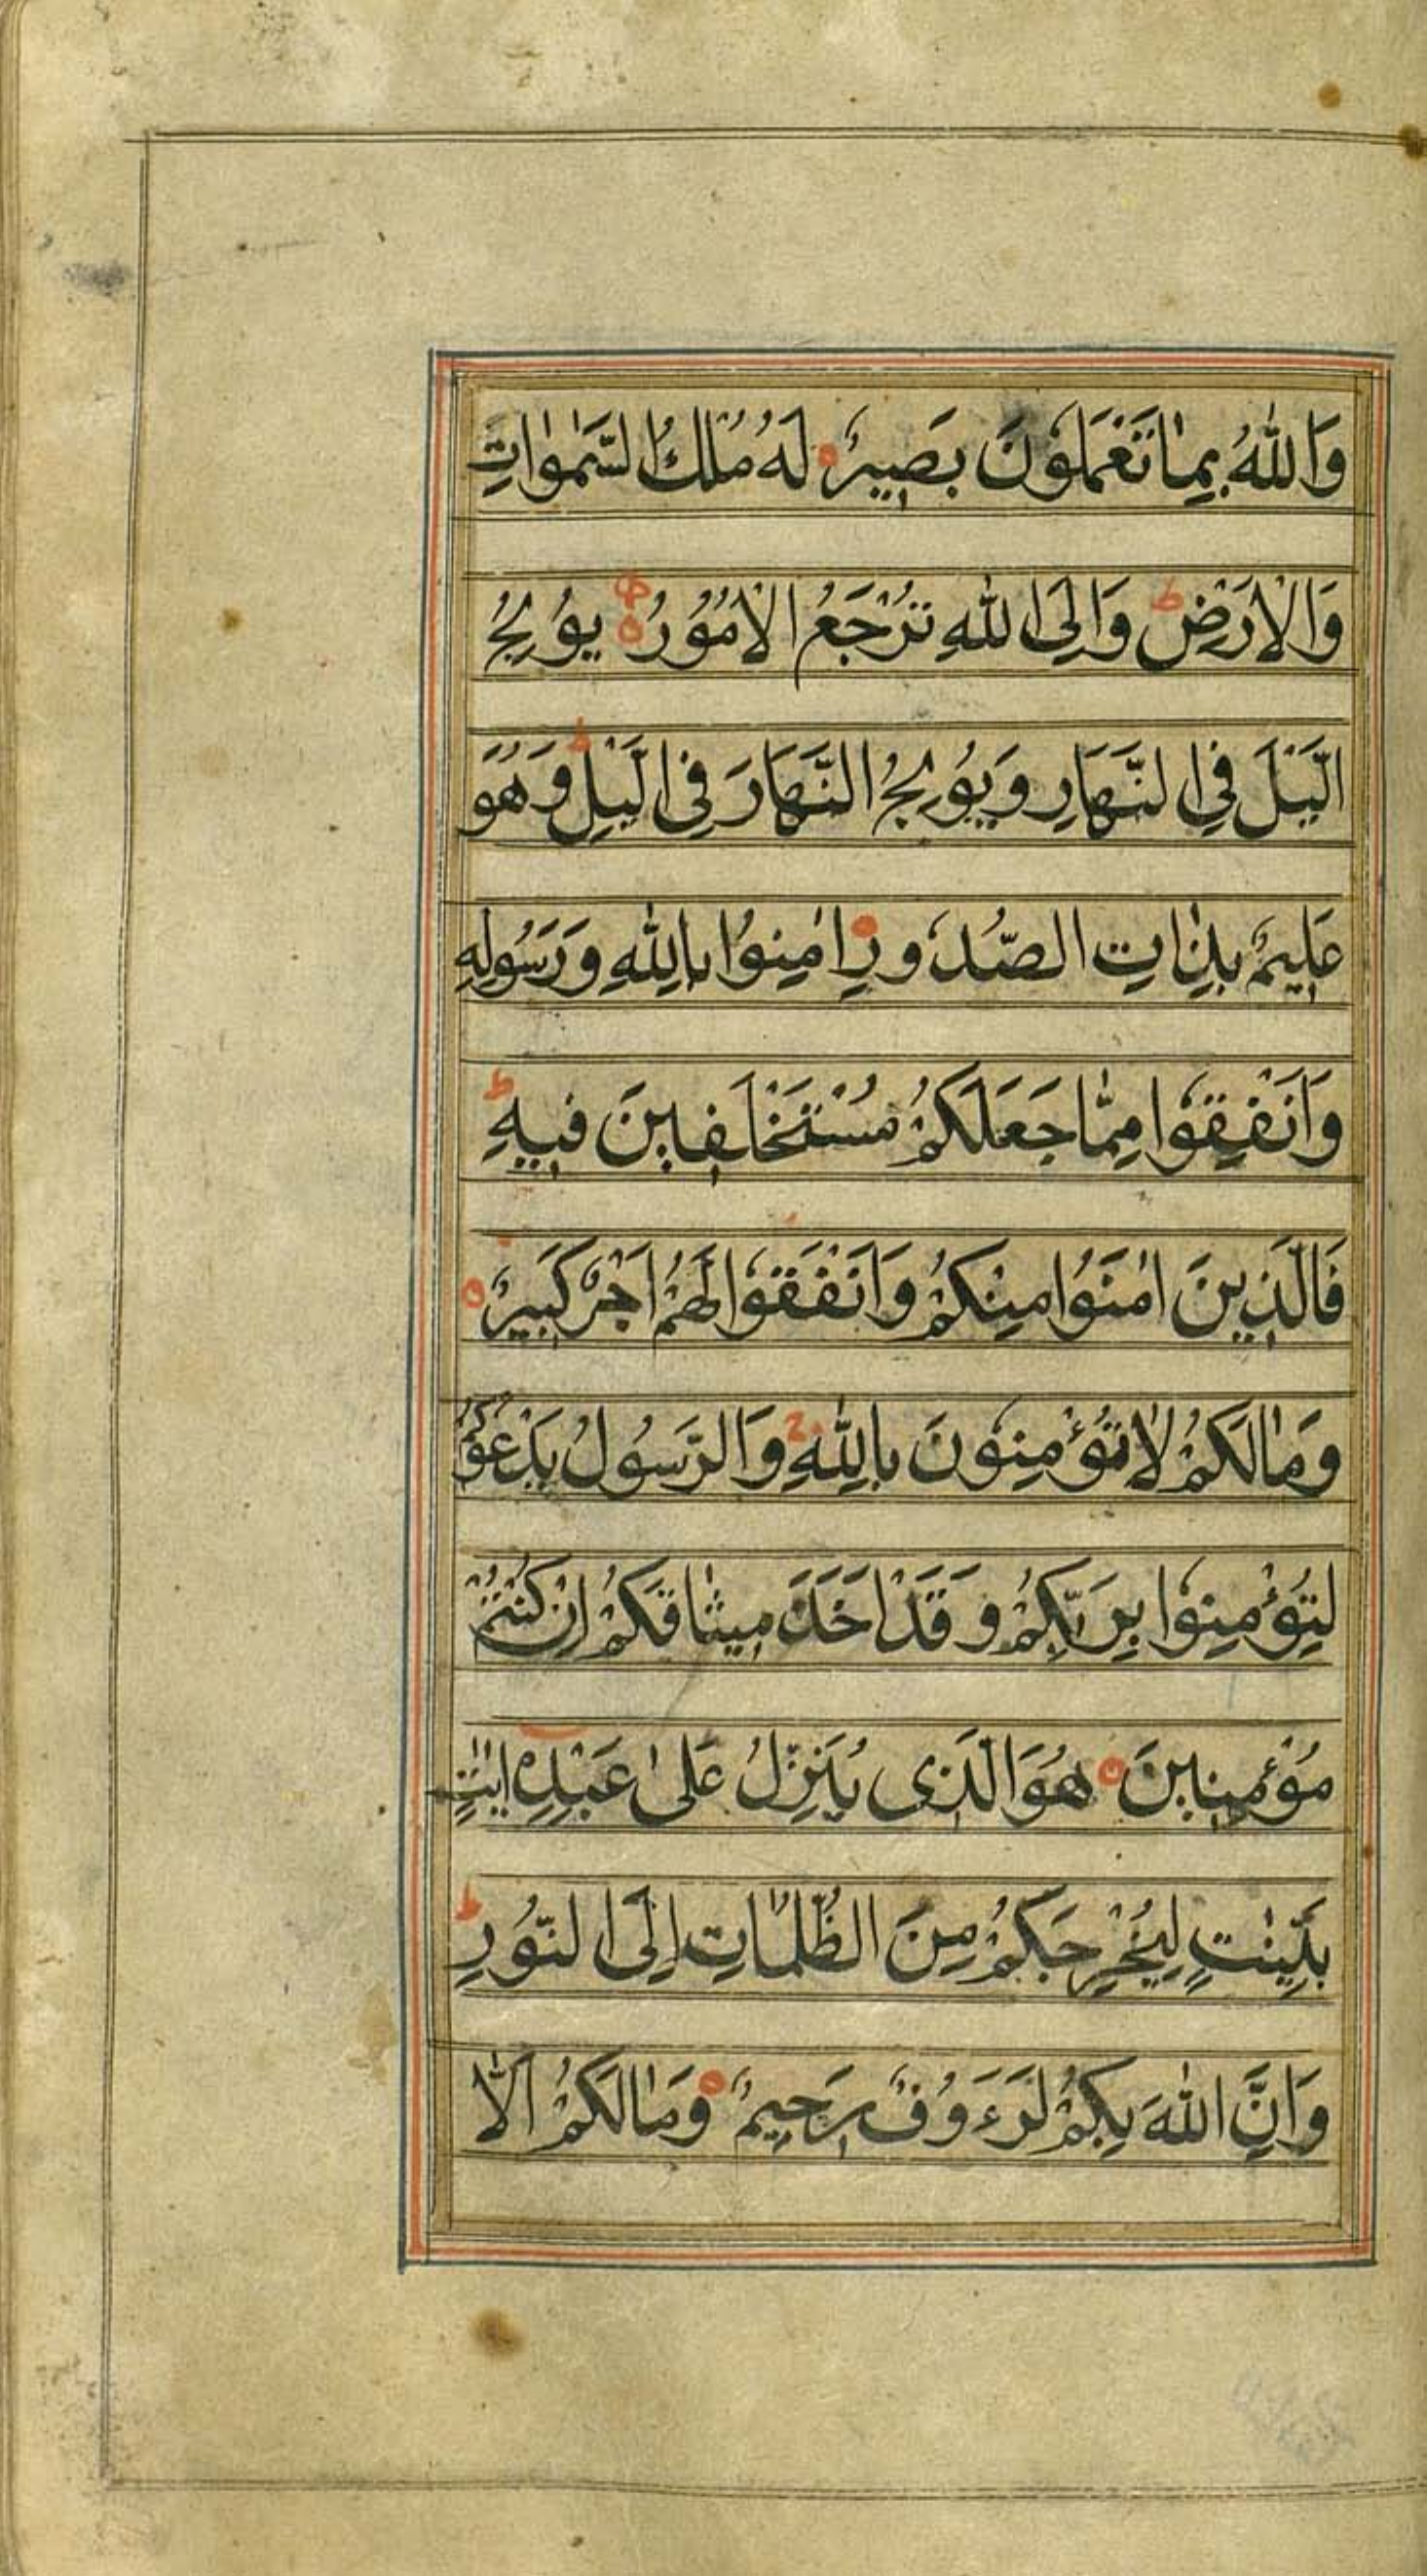 وَاللّٰهُ بِمَا تَعْمَلُوْنَ بَصِيْرٌ ه لَهُ مُلْكُ السَّمٰوَاتِ
وَالْاَرْضِ ط وَاِلَى اللّٰهِ تُرْجَعُ الْاُمُوْرُ ه يُوْلِجُ
الَّيْلَ فِى النَّهَارِ وَيُوْلِجُ النَّهَارَ فِى الَّيْلِ ط وَهُوَ
عَلِيْمٌ بِذَاتِ الصُّدُوْرِ ه اٰمِنُوْا بِاللّٰهِ وَرَسُوْلِهِ
وَاَنْفِقُوْا مِمَّا جَعَلَكُمْ مُسْتَخْلَفِيْنَ فِيْهِ ط
فَالَّذِيْنَ اٰمَنُوْا مِنْكُمْ وَاَنْفَقُوْا لَهُمْ اَجْرٌ كَبِيْرٌ ه
وَمَا لَكُمْ لَا تُؤْمِنُوْنَ بِاللّٰهِ ج وَالرَّسُوْلُ يَدْعُوْكُمْ
لِتُؤْمِنُوْا بِرَبِّكُمْ وَقَدْ اَخَذَ مِيْثَاقَكُمْ اِنْ كُنْتُمْ
مُؤْمِنِيْنَ ه هُوَ الَّذِى يُنَزِّلُ عَلٰى عَبْدِهٖ اٰيٰتٍ
بَيِّنٰتٍ لِيُخْرِجَكُمْ مِنَ الظُّلُمَاتِ اِلَى النُّوْرِ ط
وَاِنَّ اللّٰهَ بِكُمْ لَرَءُوْفٌ رَحِيْمٌ ه وَمَا لَكُمْ اَلَّا